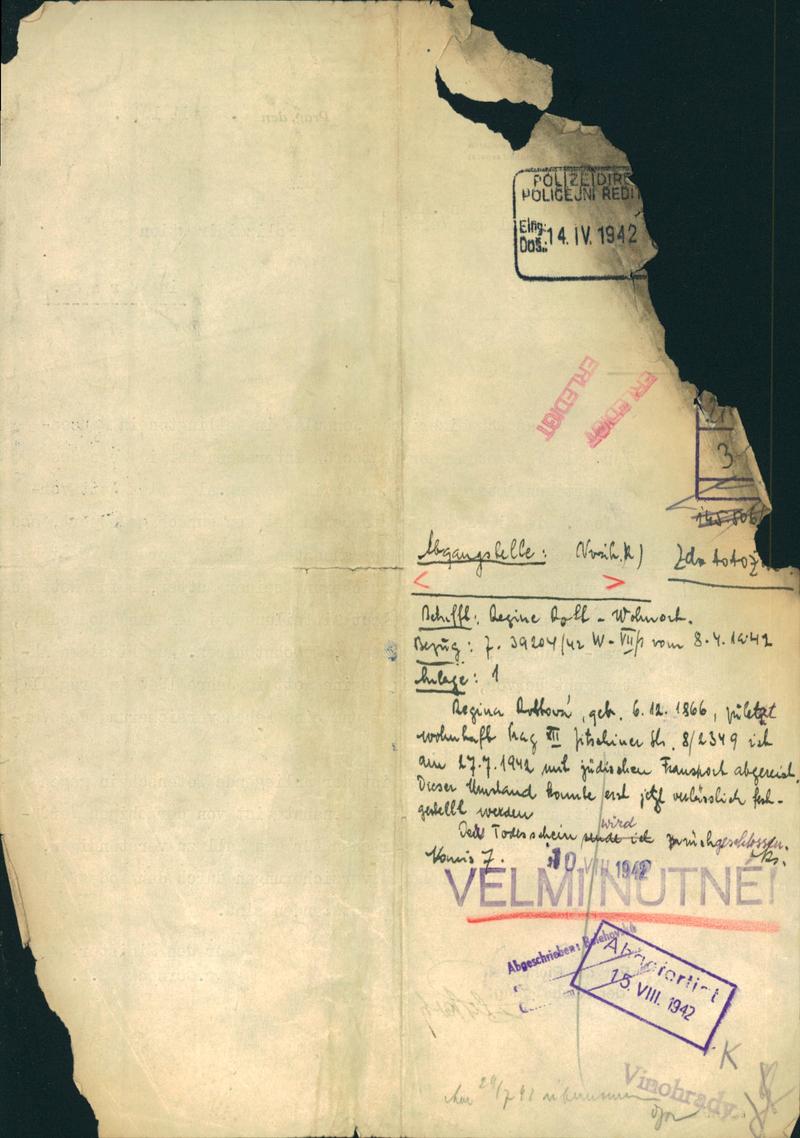 POLIZEIDIR
POLICEJNI ŘEDI
Eing.:
Doš.: 14. IV. 1942
ERLEDIGT
ERLEDIGT
3
Abgangstelle:
Betrifft: Regine Roth - Wohnort.
Bezug: Z. 39204/42 W - VII/1 vom 8.4.1942
Anlage: 1
Regina Rothová, geb. 6.12.1866, zuletzt
wohnhaft Prag XII Jitschiner Str. 8/2349 ist
am 27.7.1942 mit jüdischen Transport abgereist.
Dieser Umstand konnte erst jetzt verlässlich fest-
gestellt werden
Der Todesschein sende ich wird zurückgeschlossen.
10 VIII 1942
VELMI NUTNÉ!
Abgeschrieben:
Abgefertigt
15. VIII. 1942
K
Vinohrady